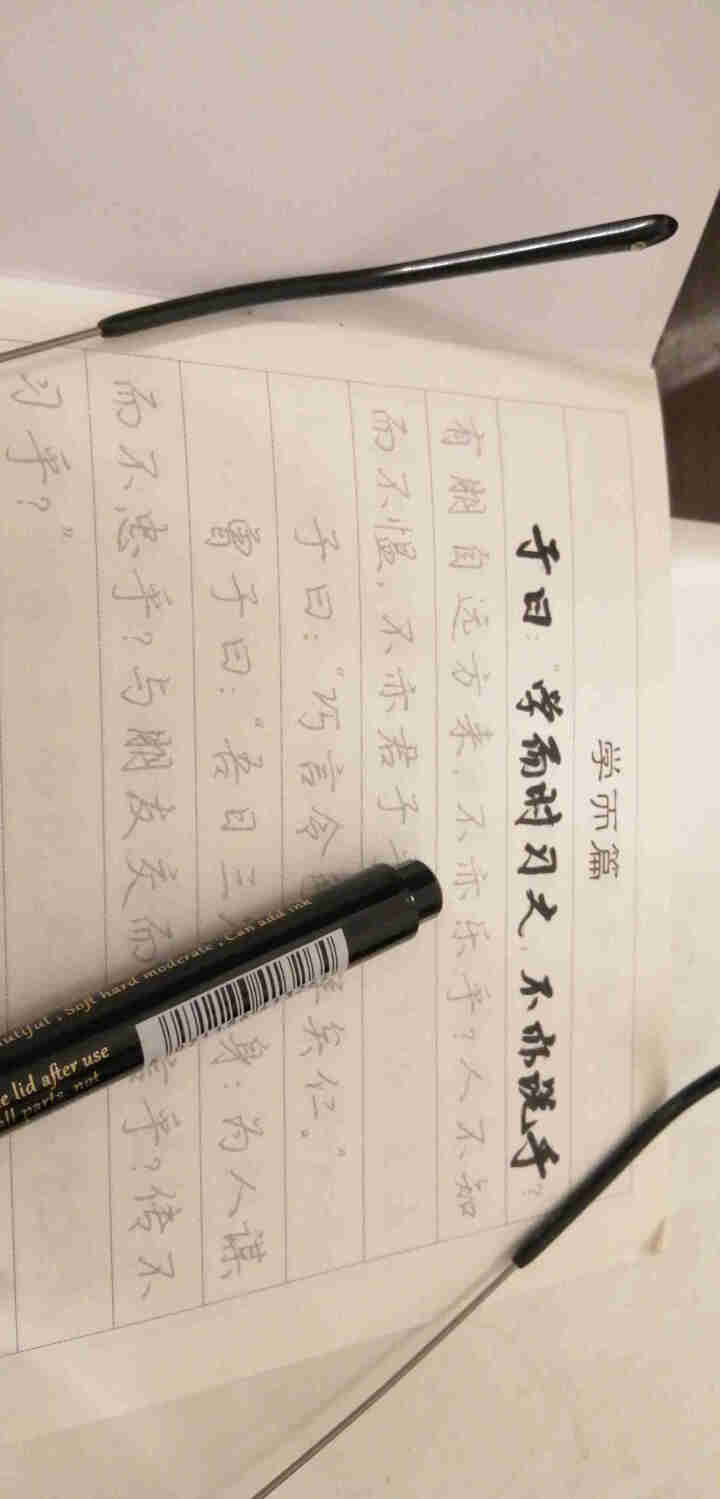 学而篇
子曰：“学而时习之，不亦说乎？
有朋自远方来，不亦乐乎？人不知
而不愠，不亦君子
子曰：“巧言令 矣仁。”
曾子曰：“吾日三 身：为人谋
而不忠乎？与朋友交而 乎？传不
习乎？”
Soft hard moderate , Can add ink
lid after use
parts, not